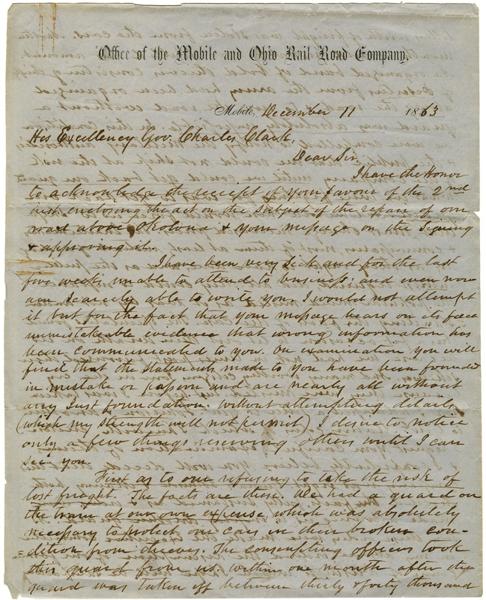 Office of the Mobile and Ohio Rail Road Company.
Mobile, December 11 1863
His Excellency Gov. Charles Clark,
Dear Sir,
I have the Honor
to acknowledge the receipt of your favour of the 2nd
inst enclosing the act on the subject of the repair of our
road above Okolona & your message on the signing
& approving it.
I have been very sick and for the last
five weeks unable to attend to business, and even now
am scarcely able to write you. I would not attempt
it but for the fact that your message bears on its face
unmistakable evidence that wrong information has
been communicated to you. On examination you will
find that the statements made to you have been founded
in mistake or passion and are nearly all without
any just foundation. without attempting details
(which my strength will not permit) I desire to notice
only a few things reserving others until I can
see you.
First as to our refusing to take the risk of
lost freight. The facts are these. We had a guard on
the train at our own expense which was absolutely
necessary to protect our cars in their broken con-
=dition from thieves. The conscripting officers took
this guard from us. within one month after this
guard was taken off between thirty & forty thousand